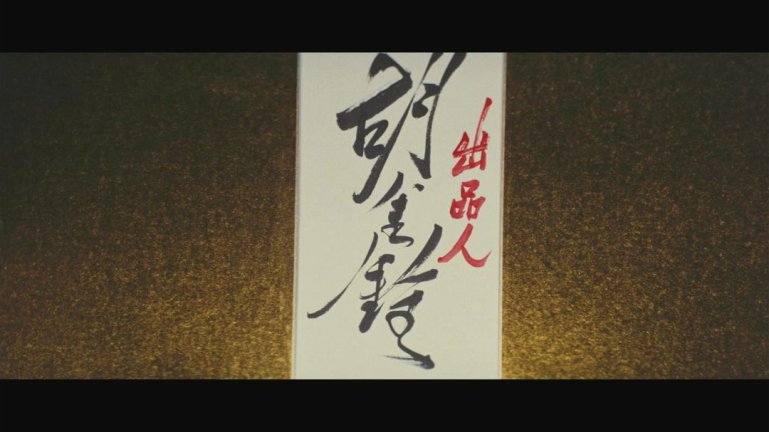 出品人
胡金銓